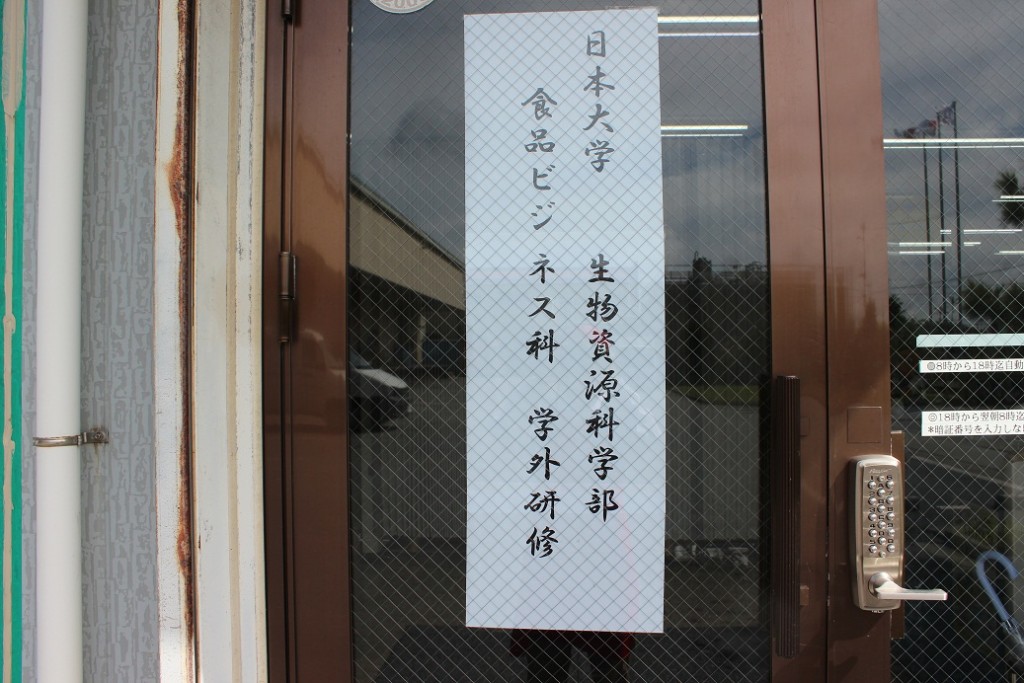 日本大学　生物資源科学部
食品ビジネス科　学外研修
◎8時から18時迄自動
◎18時から翌朝8時迄
*暗証番号を入力しな